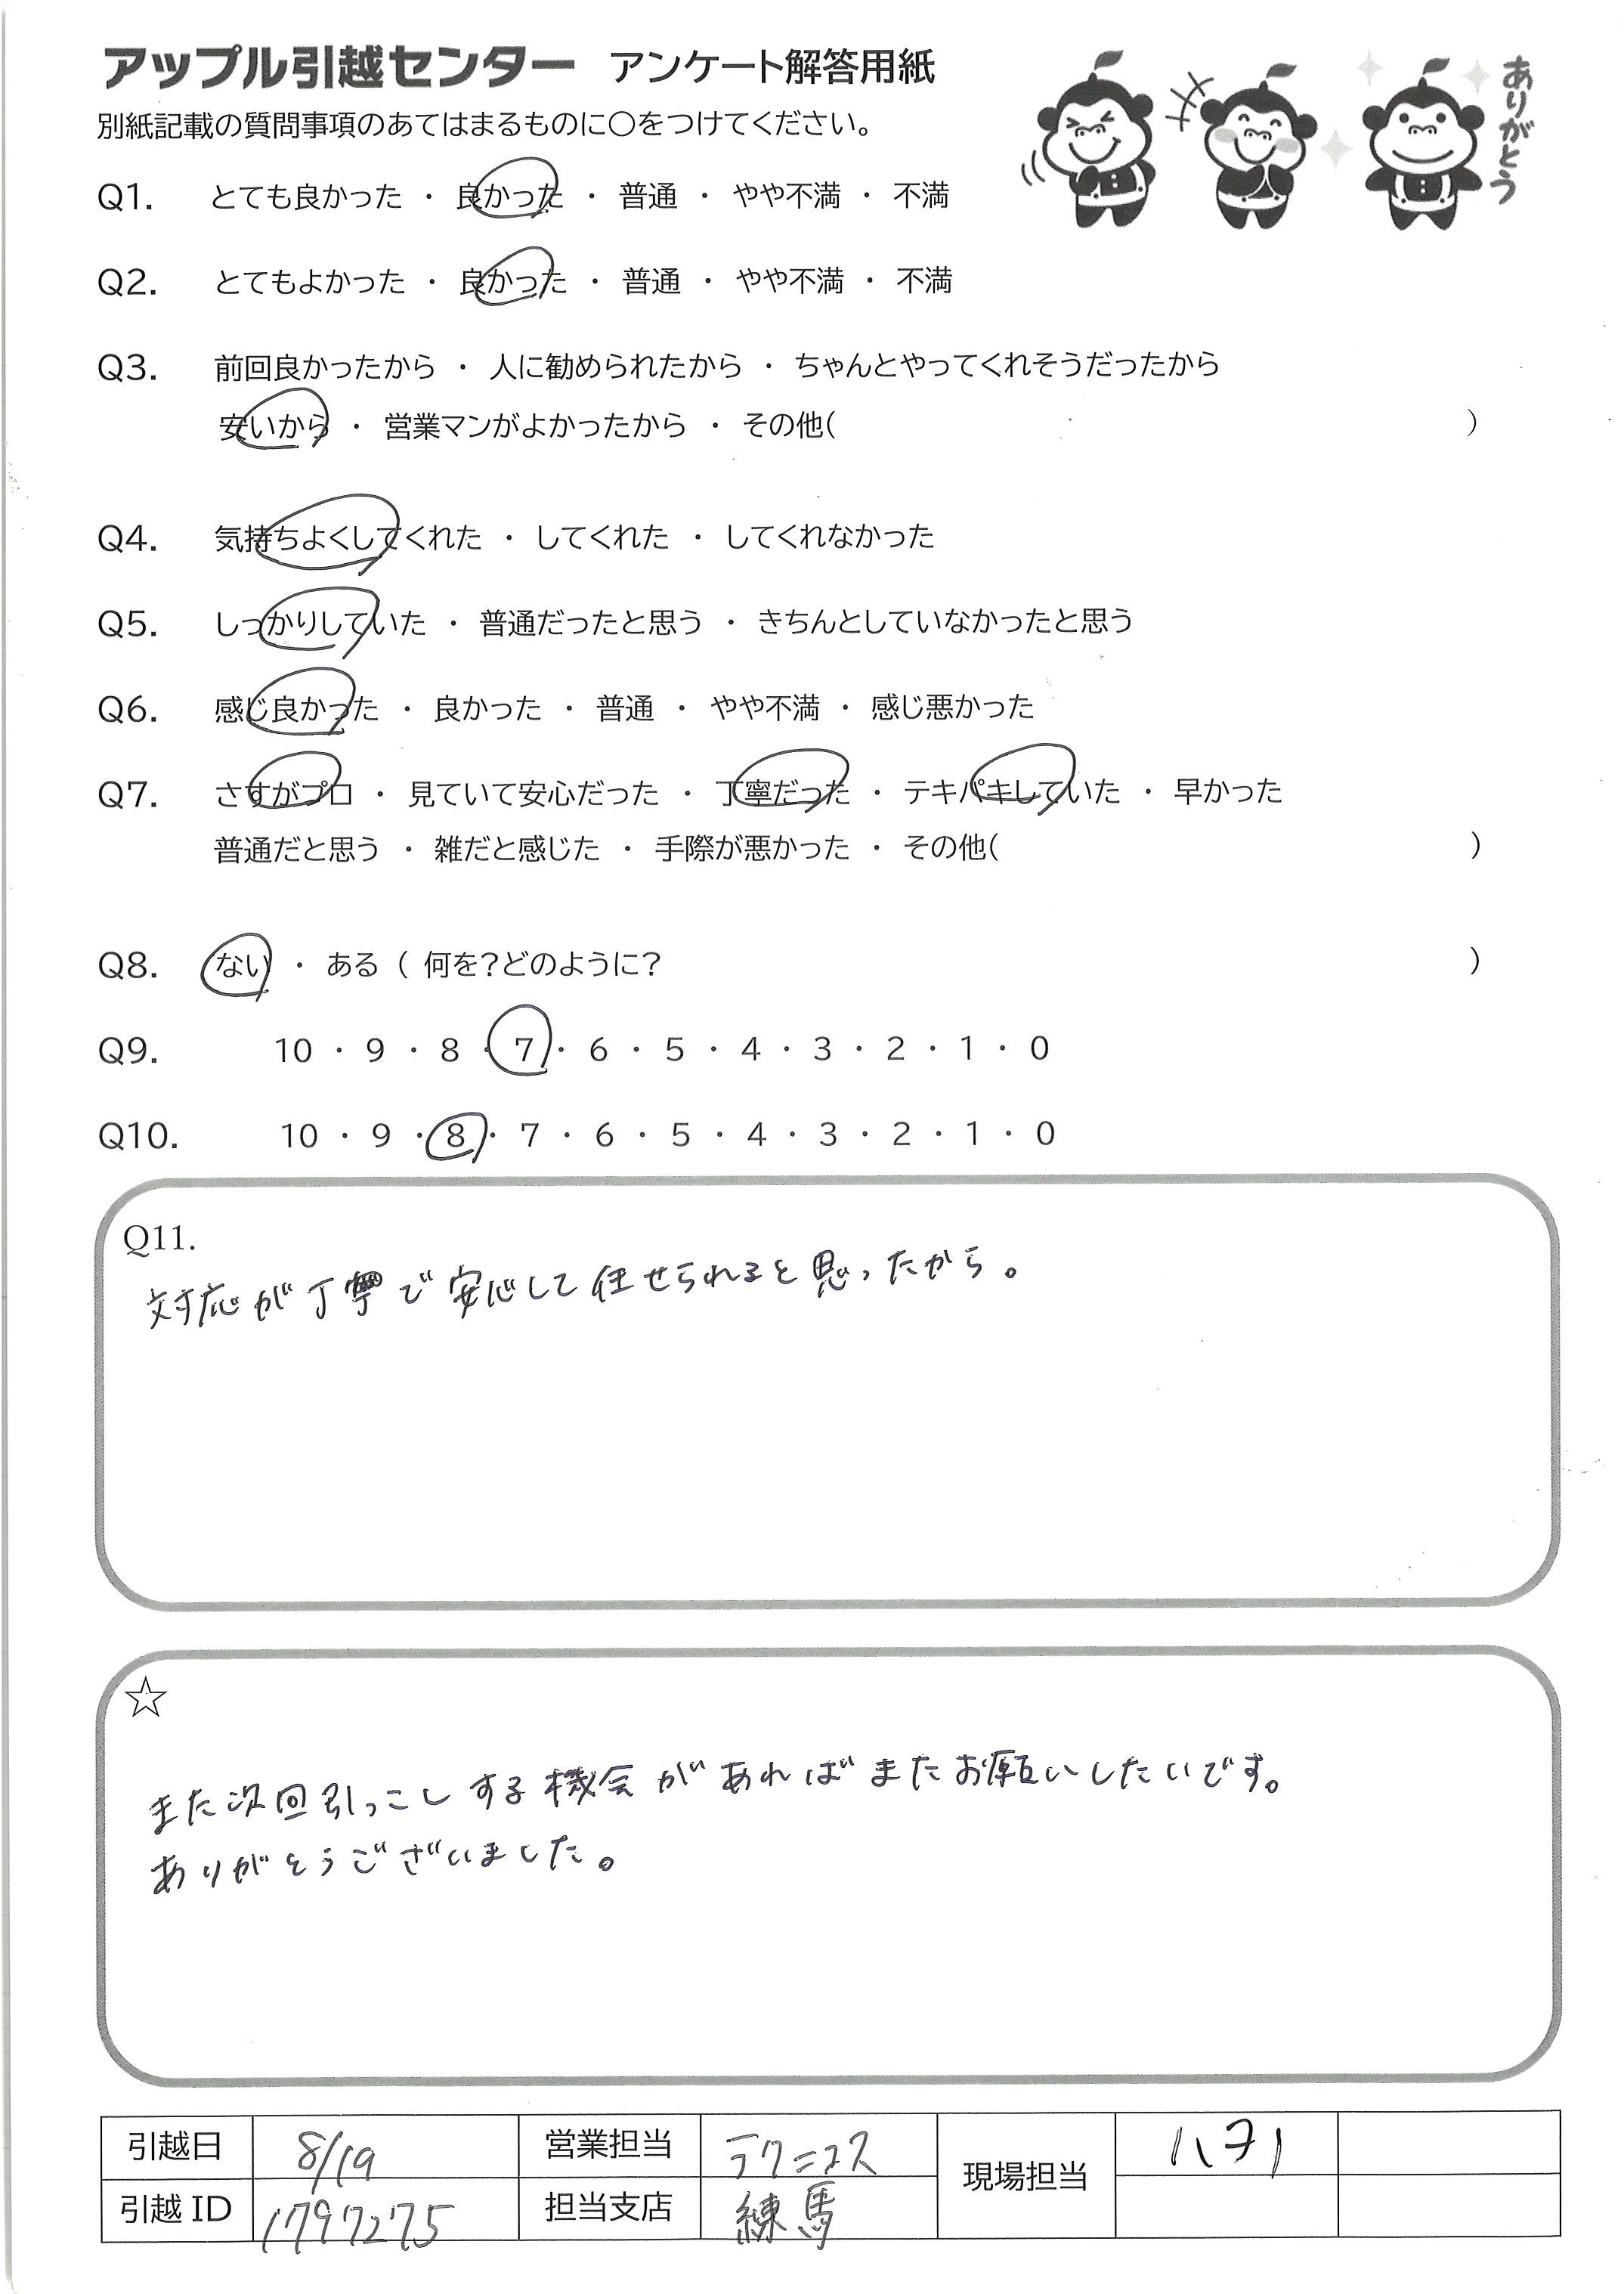 アップル引越センター アンケート解答用紙
ありがとう
別紙記載の質問事項のあてはまるものに〇をつけてください。
Q1. とても良かった ・ 良かった ・ 普通 ・ やや不満 ・ 不満
Q2. とてもよかった ・ 良かった ・ 普通 ・ やや不満 ・ 不満
Q3. 前回良かったから ・ 人に勧められたから ・ ちゃんとやってくれそうだったから
安いから ・ 営業マンがよかったから ・ その他( )
Q4. 気持ちよくしてくれた ・ してくれた ・ してくれなかった
Q5. しっかりしていた ・ 普通だったと思う ・ きちんとしていなかったと思う
Q6. 感じ良かった ・ 良かった ・ 普通 ・ やや不満 ・ 感じ悪かった
Q7. さすがプロ ・ 見ていて安心だった ・ 丁寧だった ・ テキパキしていた ・ 早かった
普通だと思う ・ 雑だと感じた ・ 手際が悪かった ・ その他( )
Q8. ない ・ ある ( 何を?どのように? )
Q9. 10 ・ 9 ・ 8 ・ 7 ・ 6 ・ 5 ・ 4 ・ 3 ・ 2 ・ 1 ・ 0
Q10. 10 ・ 9 ・ 8 ・ 7 ・ 6 ・ 5 ・ 4 ・ 3 ・ 2 ・ 1 ・ 0
Q11.
対応が丁寧で安心して任せられると思ったから。
☆
また次回引っこしする機会があればまたお願いしたいです。
ありがとうございました。
引越日 8/19 営業担当 ラクニコス 現場担当
引越ID 1797275 担当支店 練馬